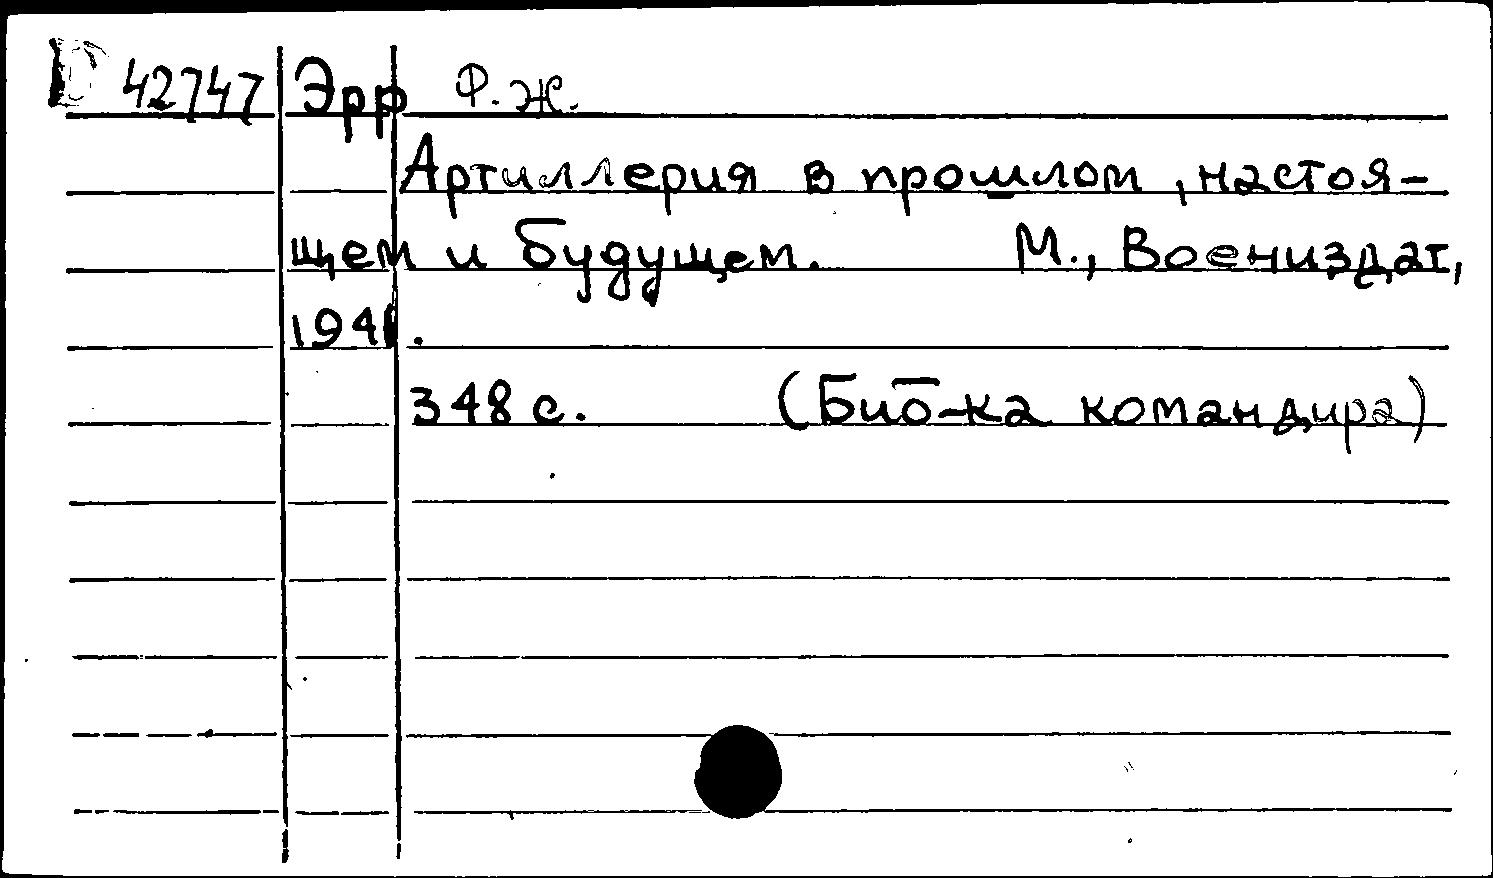 42747 Эрр Ф. Ж.
Артиллерия в прошлом, настоя-
щем и будущем. М., Воениздат,
1941.
348 с. (Биб-ка командира)